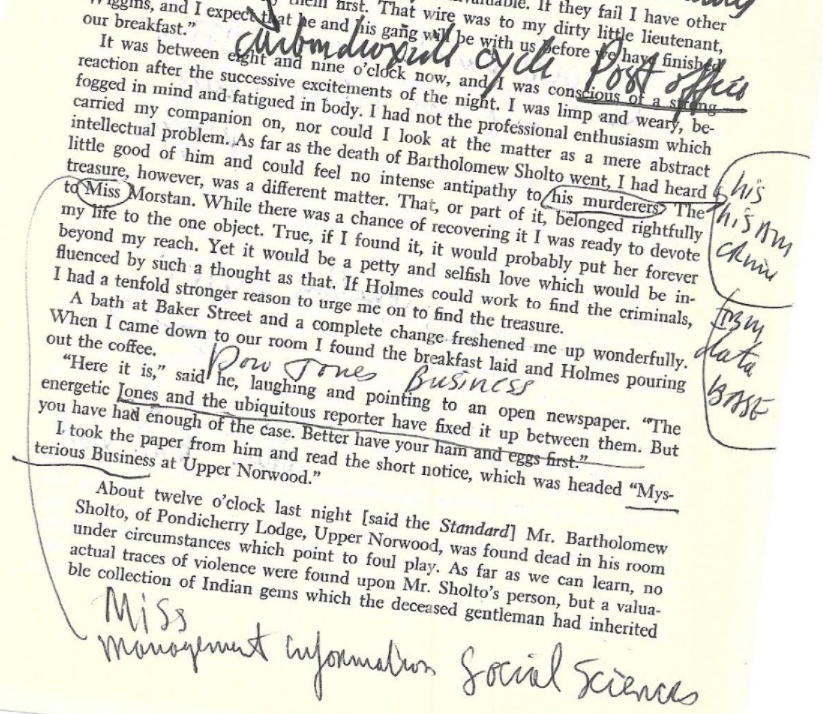 If they fail I have other
Wiggins, and I expect that he and his gang will be with us before we have finished
them first. That wire was to my dirty little lieutenant,
our breakfast.”
cycle Post office
It was between eight and nine o’clock now, and I was conscious of a strong
reaction after the successive excitements of the night. I was limp and weary, be-
fogged in mind and fatigued in body. I had not the professional enthusiasm which
carried my companion on, nor could I look at the matter as a mere abstract
intellectual problem. As far as the death of Bartholomew Sholto went, I had heard
little good of him and could feel no intense antipathy to his murderers. The
treasure, however, was a different matter. That, or part of it, belonged rightfully
to Miss Morstan. While there was a chance of recovering it I was ready to devote
my life to the one object. True, if I found it, it would probably put her forever
beyond my reach. Yet it would be a petty and selfish love which would be in-
fluenced by such a thought as that. If Holmes could work to find the criminals,
I had a tenfold stronger reason to urge me on to find the treasure.
his
his
crime
IBM
data
BASE
A bath at Baker Street and a complete change freshened me up wonderfully.
When I came down to our room I found the breakfast laid and Holmes pouring
out the coffee.
Dow Jones Business
“Here it is,” said he, laughing and pointing to an open newspaper. “The
energetic Jones and the ubiquitous reporter have fixed it up between them. But
you have had enough of the case. Better have your ham and eggs first.”
I took the paper from him and read the short notice, which was headed “Mys-
terious Business at Upper Norwood.”
About twelve o’clock last night [said the Standard] Mr. Bartholomew
Sholto, of Pondicherry Lodge, Upper Norwood, was found dead in his room
under circumstances which point to foul play. As far as we can learn, no
actual traces of violence were found upon Mr. Sholto’s person, but a valua-
ble collection of Indian gems which the deceased gentleman had inherited
Miss
management information Social Sciences